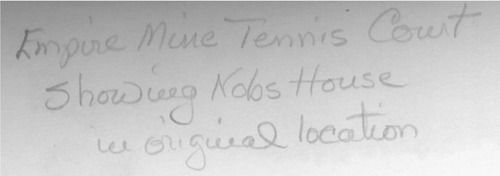 Empire Mine Tennis Court
Showing Nobs House
in original location